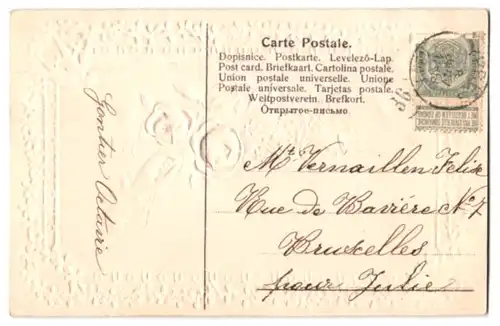 Carte Postale.
Dopisnice. Postkarte. Levelező-Lap.
Post card. Briefkaart. Cartolina postale.
Union postale universelle. Unione
Postale universale. Tarjetas postale.
Weltpostverein. Brefkort.
Открытое-письмо
Gontier Octavie
Mt Vernaillen Felix
Rue de Bavière No 7
Bruxelles
pour Julie